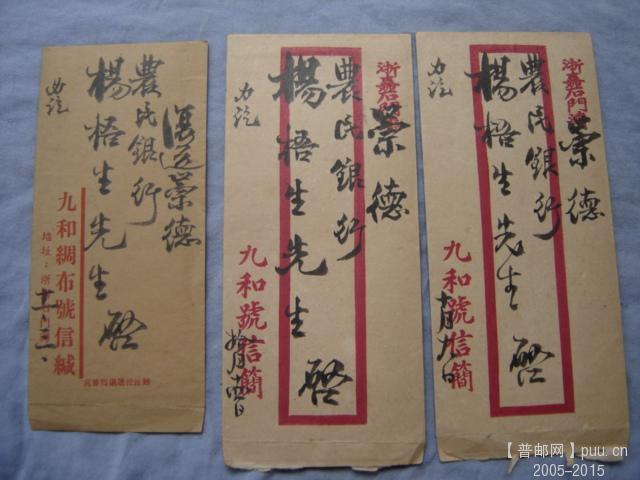 崇德
農民銀行
楊梧生先生 啓
力訖
九和綢布號信緘
地址：浙
崇德
農民銀行
楊梧生先生 啓
力訖
九和號信簡
浙嘉石門灣
崇德
農民銀行
楊梧生先生 啓
力訖
九和號信簡
十月九日
【普邮网】puu.cn
2005-2015